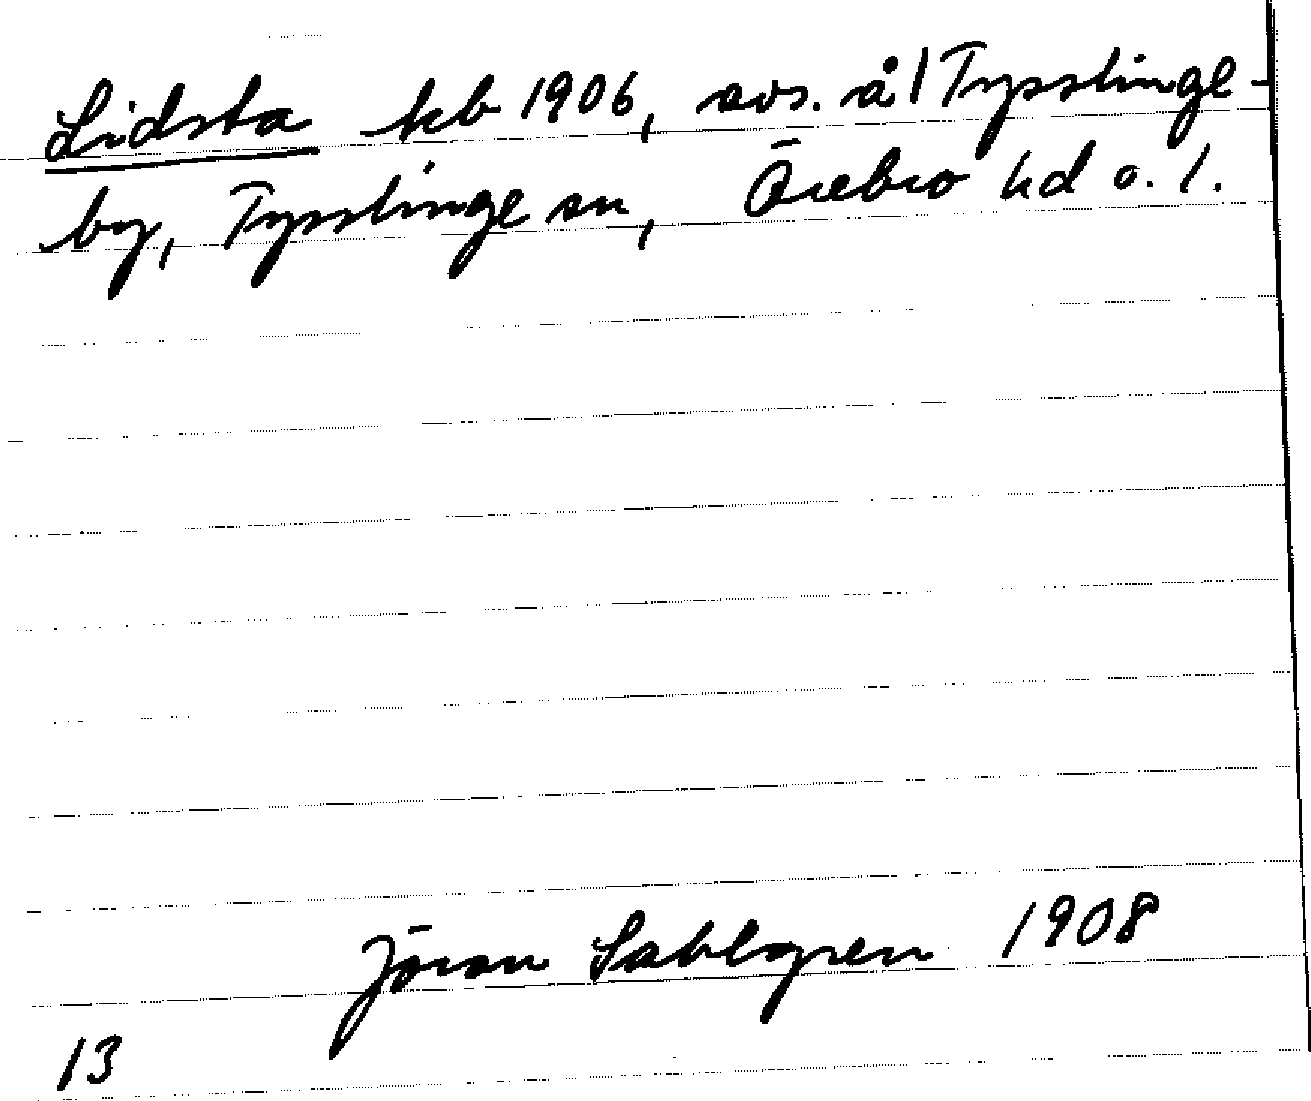 Lidsta kb 1906, avs. å 1 Tysslinge-
by, Tysslinge sn, Örebro hd o. l.
Jöran Sahlgren 1908
13